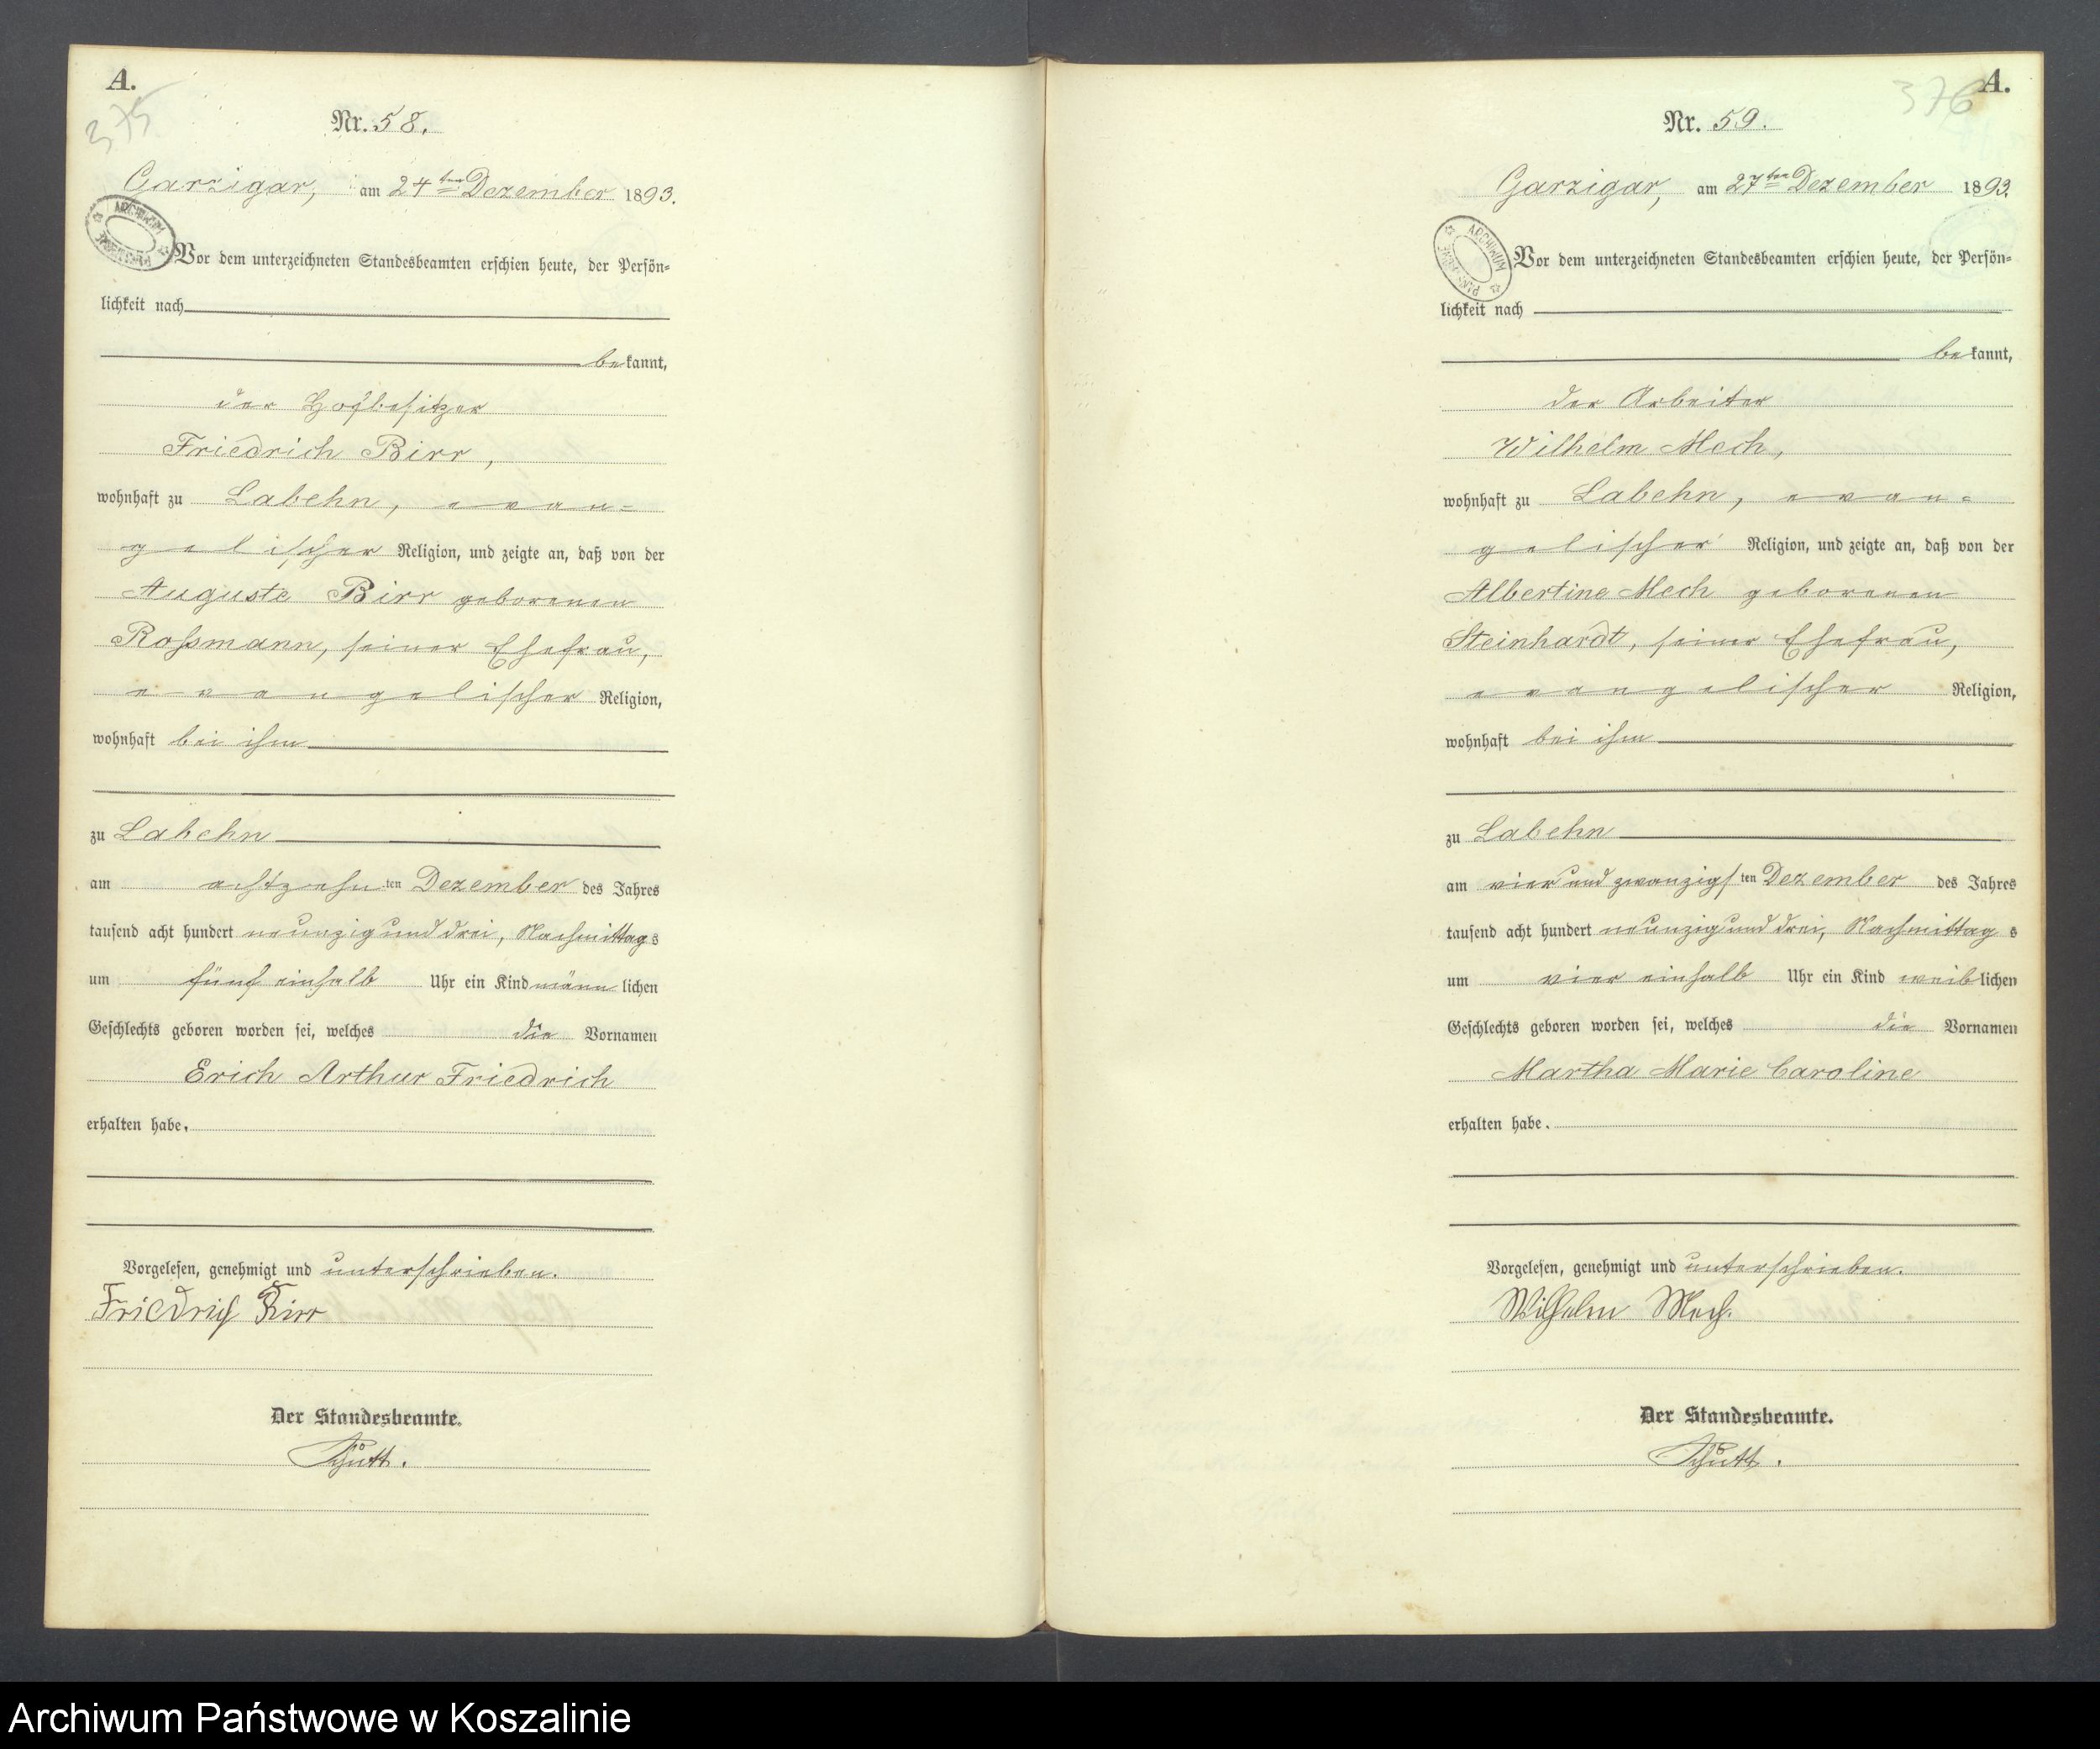 A.
375
Nr. 58.
Garzigar, am 24ten Dezember 1893.
ARCHIWUM
Vor dem unterzeichneten Standesbeamten erschien heute, der Persön=
lichkeit nach
bekannt,
der Hofbesitzer
Friedrich Birr,
wohnhaft zu Labehn, evan=
gelischer Religion, und zeigte an, daß von der
Auguste Birr geborenen
Roßmann, seiner Ehefrau,
evangelischer Religion,
wohnhaft bei ihm
zu Labehn
am achtzehnten Dezember des Jahres
tausend acht hundert neunzig und drei, Nachmittags
um fünf einhalb Uhr ein Kind männlichen
Geschlechts geboren worden sei, welches die Vornamen
Erich Arthur Friedrich
erhalten habe.
Vorgelesen, genehmigt und unterschrieben.
Friedrich Birr
Der Standesbeamte.
Schütt.
A.
376
Nr. 59.
Garzigar, am 27ten Dezember 1893.
ARCHIWUM
Vor dem unterzeichneten Standesbeamten erschien heute, der Persön=
lichkeit nach
bekannt,
der Arbeiter
Wilhelm Mech,
wohnhaft zu Labehn, evan=
gelischer Religion, und zeigte an, daß von der
Albertine Mech geborenen
Steinhardt, seiner Ehefrau,
evangelischer Religion,
wohnhaft bei ihm
zu Labehn
am vier und zwanzigsten Dezember des Jahres
tausend acht hundert neunzig und drei, Nachmittags
um vier einhalb Uhr ein Kind weiblichen
Geschlechts geboren worden sei, welches die Vornamen
Martha Marie Caroline
erhalten habe.
Vorgelesen, genehmigt und unterschrieben.
Wilhelm Mech.
Der Standesbeamte.
Schütt.
Archiwum Państwowe w Koszalinie